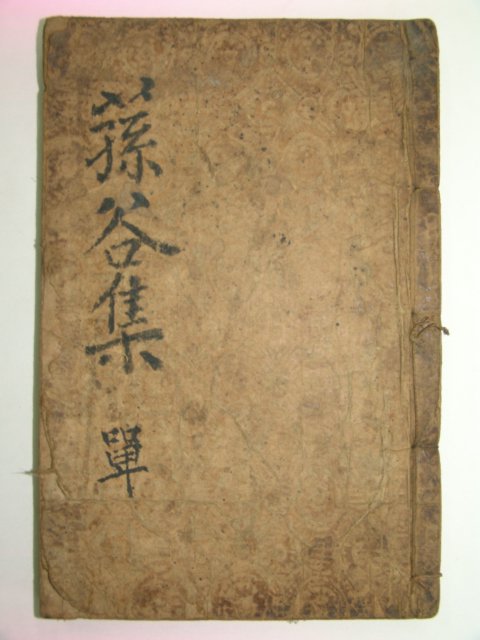 蓀谷集 單